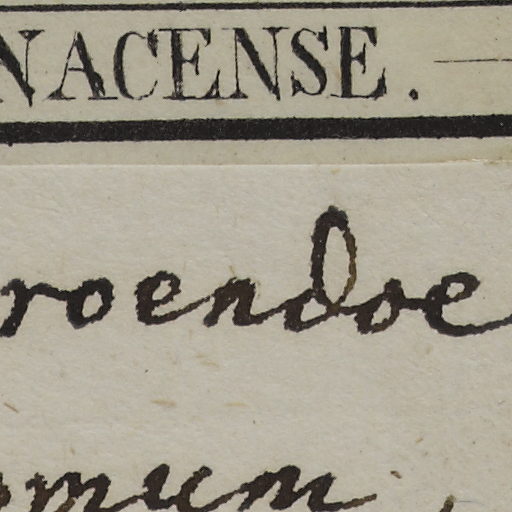 NACENSE.
roendoe
mum,